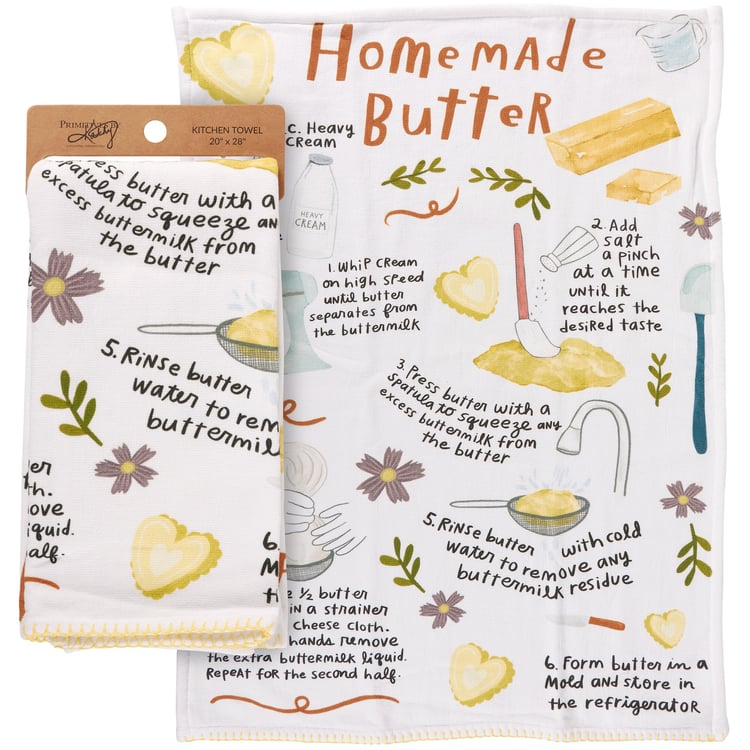 Homemade
Butter
PRIMITIVES BY
Kathy
KITCHEN TOWEL
20" x 28"
Press butter with a
spatula to squeeze any
excess buttermilk from
the butter
5. Rinse butter
water to rem
buttermil
er
th.
ove
iquid.
half.
6.
C. Heavy
Cream
HEAVY
CREAM
1. Whip cream
on high speed
until butter
separates from
the buttermilk
2. Add
salt
a pinch
at a time
until it
reaches the
desired taste
3. Press butter with a
spatula to squeeze any
excess buttermilk from
the butter
e ½ butter
in a strainer
cheese cloth.
hands remove
the extra buttermilk liquid.
Repeat for the second half.
5. Rinse butter with cold
water to remove any
buttermilk residue
6. Form butter in a
mold and store in
the refrigerator